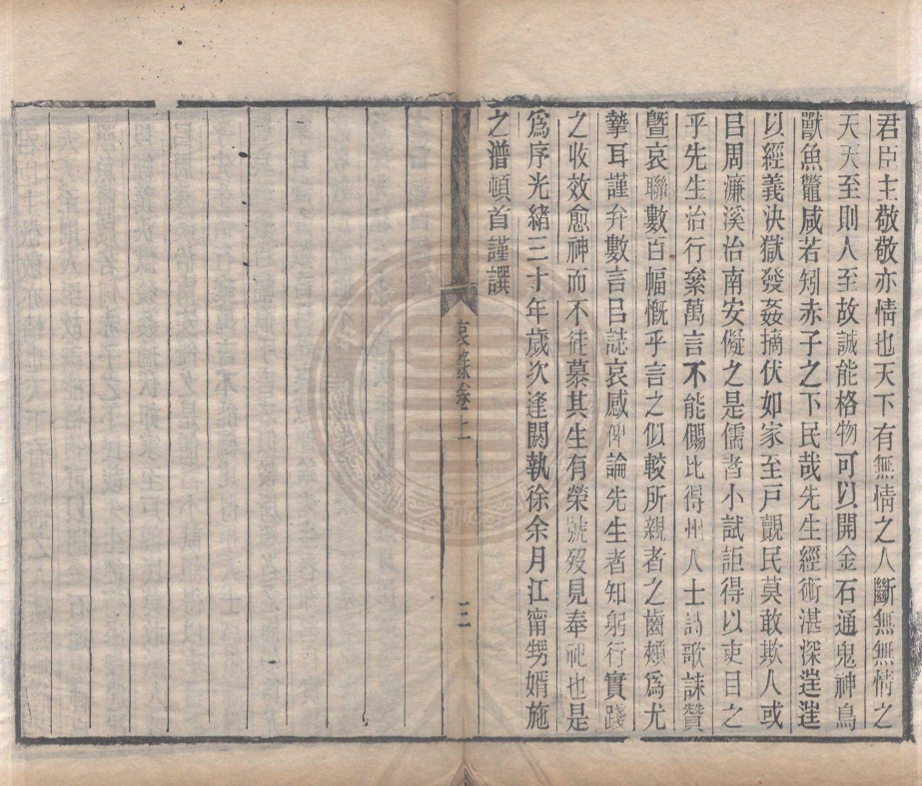 君臣主敬敬亦情也天下有無情之人斷無無情之
天天至則人至故誠能格物可以開金石通鬼神鳥
獸魚鼈咸若矧赤子之下民哉先生經術湛深遑遑
以經義決獄發姦摘伏如家至戶覿民莫敢欺人或
㠯周濂溪治南安儗之是儒者小試詎得以吏目之
乎先生治行絫萬言不能僃比得州人士詩歌誄贊
暨哀聯數百幅慨乎言之似較所親者之齒頰爲尤
摯耳謹弁數言㠯誌哀感俾論先生者知躬行實踐
之收效愈神而不徒慕其生有榮號歿見奉祀也是
爲序光緒三十年歲次逢閼執徐余月江甯甥婿施
之潽頓首謹譔
哀錄卷上
三